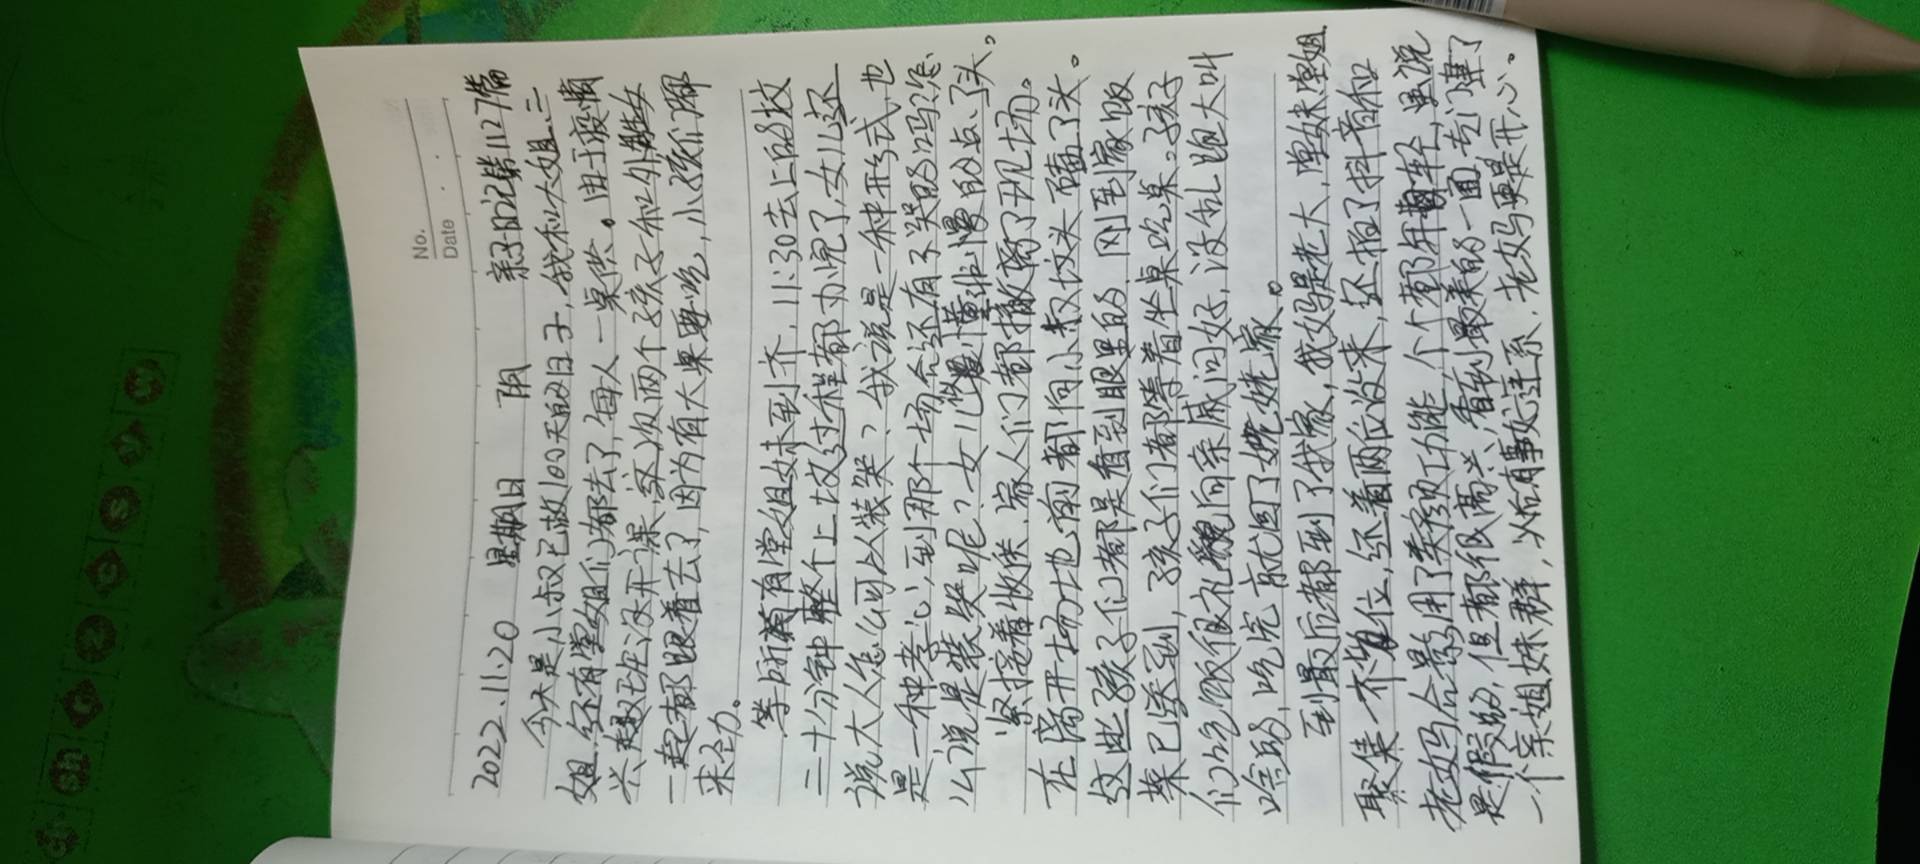 No.
Date
2022.11.20 星期日 阴 亲子日记第1127篇
今天是小叔已故100天的日子,我和大姐、三
姐、还有堂姐们都去了,每人一桌供。由于疫情
兴趣班没开课,这次两个孩子和外甥女
一起都跟着去了,因为有大果要吃,小孩们都
来玉力。
等所有堂姐妹到齐,11:30去上的坟
二十分钟整个上坟过程都办完了,女儿还
说大人怎么可以装哭?我说是一种形式,也
是一种孝心,到那个场合还有不哭的吗?怎
么说是装哭呢?女儿似懂非懂的点了头。
紧接着收供,家人们都撤离了现场。
在离开场地前都向小叔坟头磕了头。
这些孩子们都是看到眼里的,刚到家饭
菜已送到,孩子们都等着坐桌吃桌。孩子
们吃饭很礼貌向亲戚问好,没乱跑大叫
啥的,吃完就回了姥姥家。
到最后都到了我家,我妈是老大,堂妹堂姐
聚集一不当位,还差两位没来,还拍了抖音和
老妈合影用了美颜功能,个个都年轻,虽说
是假的,但都很高兴,看到最美的一面,专门建了
一个亲姐妹群,以后有事好连系,老妈更是开心。